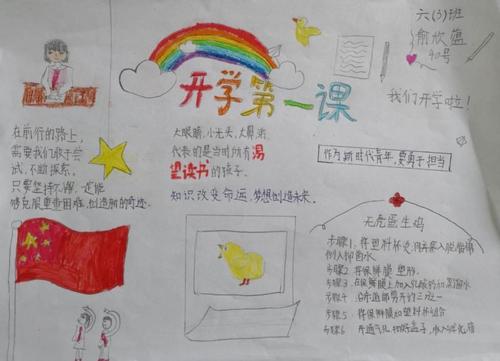 六(3)班
俞欣蕴
40号
我们开学啦!
开学第一课
在前行的路上,
需要我们敢于尝
试,不断探索,
只要坚持不懈,一定能
够克服重重困难,创造新的奇迹。
大眼睛,小光头,大鼻涕
代表的是当时所有渴
望读书的孩子。
知识改变命运,梦想创造未来。
作为新时代青年,要勇于担当
无壳蛋生鸡
步骤1,将塑料杯
倒入抑菌水
步骤2 将保鲜膜 塑形
步骤3,在保鲜膜上加入乳酸钙和蒸馏水
步骤4
步骤5 将保鲜膜和塑料杯组合
步骤6 开通气孔